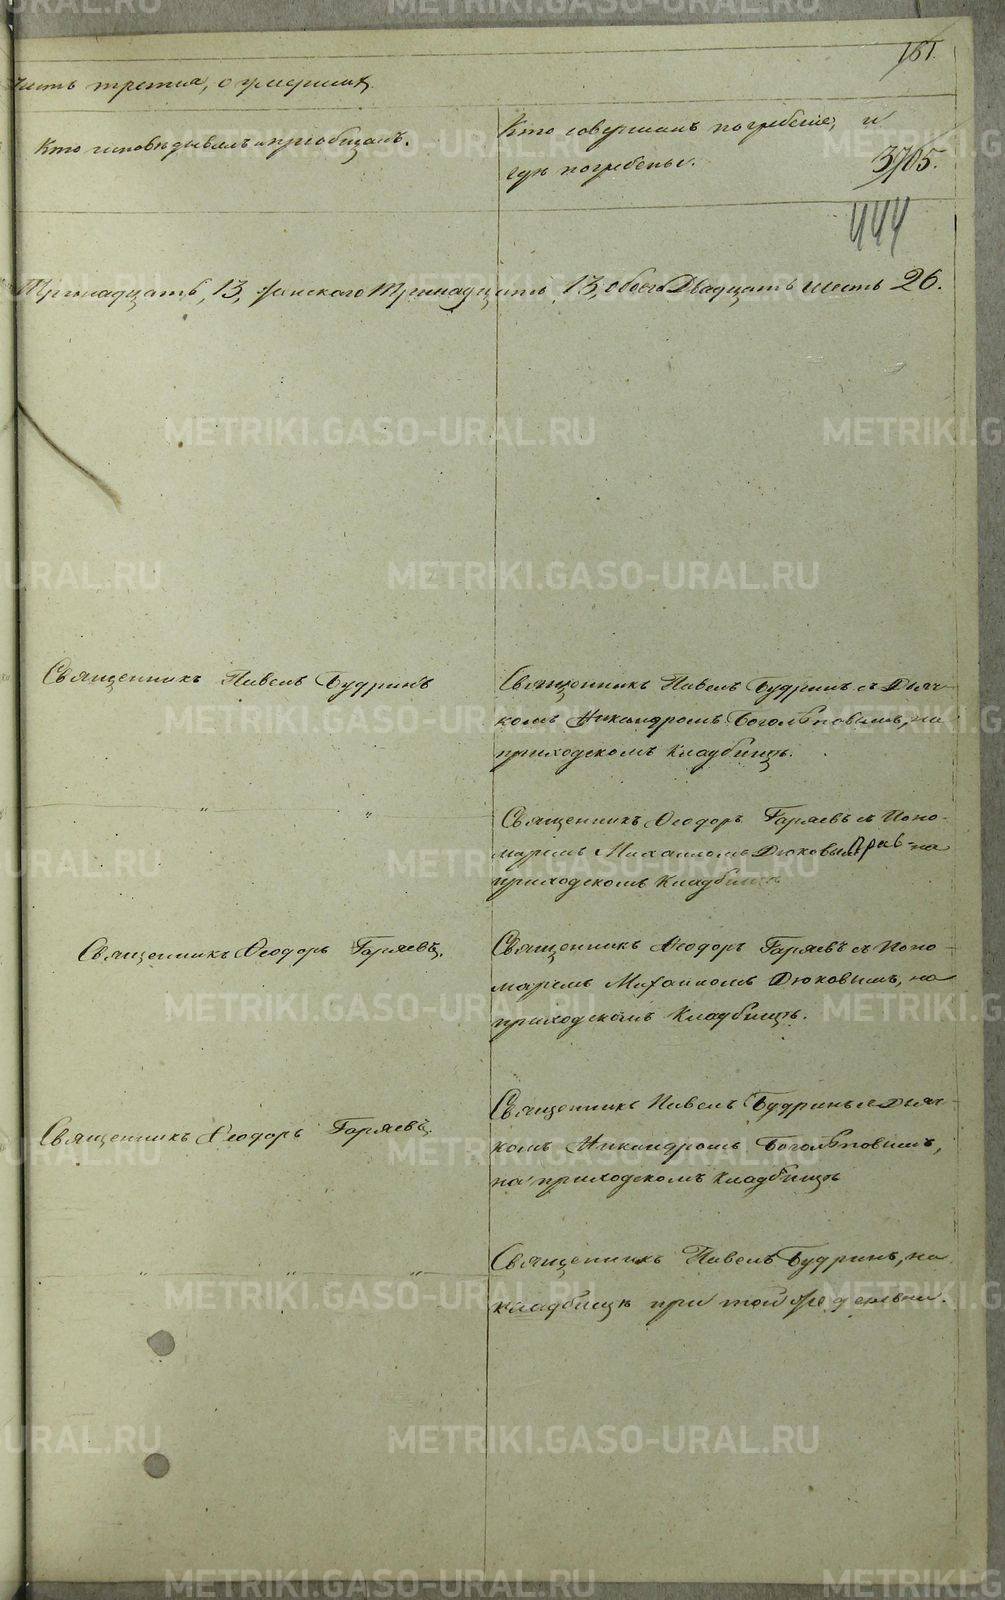 161
Часть третья, о умершихъ.
Кто исповѣдывалъ и приобщалъ.
Кто совершалъ погребеніе, и
гдѣ погребены.
3705.
444
Тринадцать, 13, женскаго Тринадцать, 13, обоего Двадцать шесть 26.
Священникъ Павелъ Будринъ
Священникъ Павелъ Будринъ съ Дьяч-
комъ Никандромъ Боголѣповымъ, на
приходскомъ кладбищѣ.
" "
Священникъ Ѳеодоръ Гаряевъ съ Поно-
маремъ Михаиломъ Дюковымъ на
приходскомъ кладбищѣ
Священникъ Ѳеодоръ Гаряевъ.
Священникъ Ѳеодоръ Гаряевъ съ Поно-
маремъ Михаиломъ Дюковымъ, на
приходскомъ кладбищѣ.
Священникъ Ѳеодоръ Гаряевъ.
Священникъ Павелъ Будринъ съ Дьяч-
комъ Никандромъ Боголѣповымъ,
на приходскомъ кладбищѣ
" " "
Священникъ Павелъ Будринъ, на
кладбищѣ при той же деревни.
METRIKI.GASO-URAL.RU